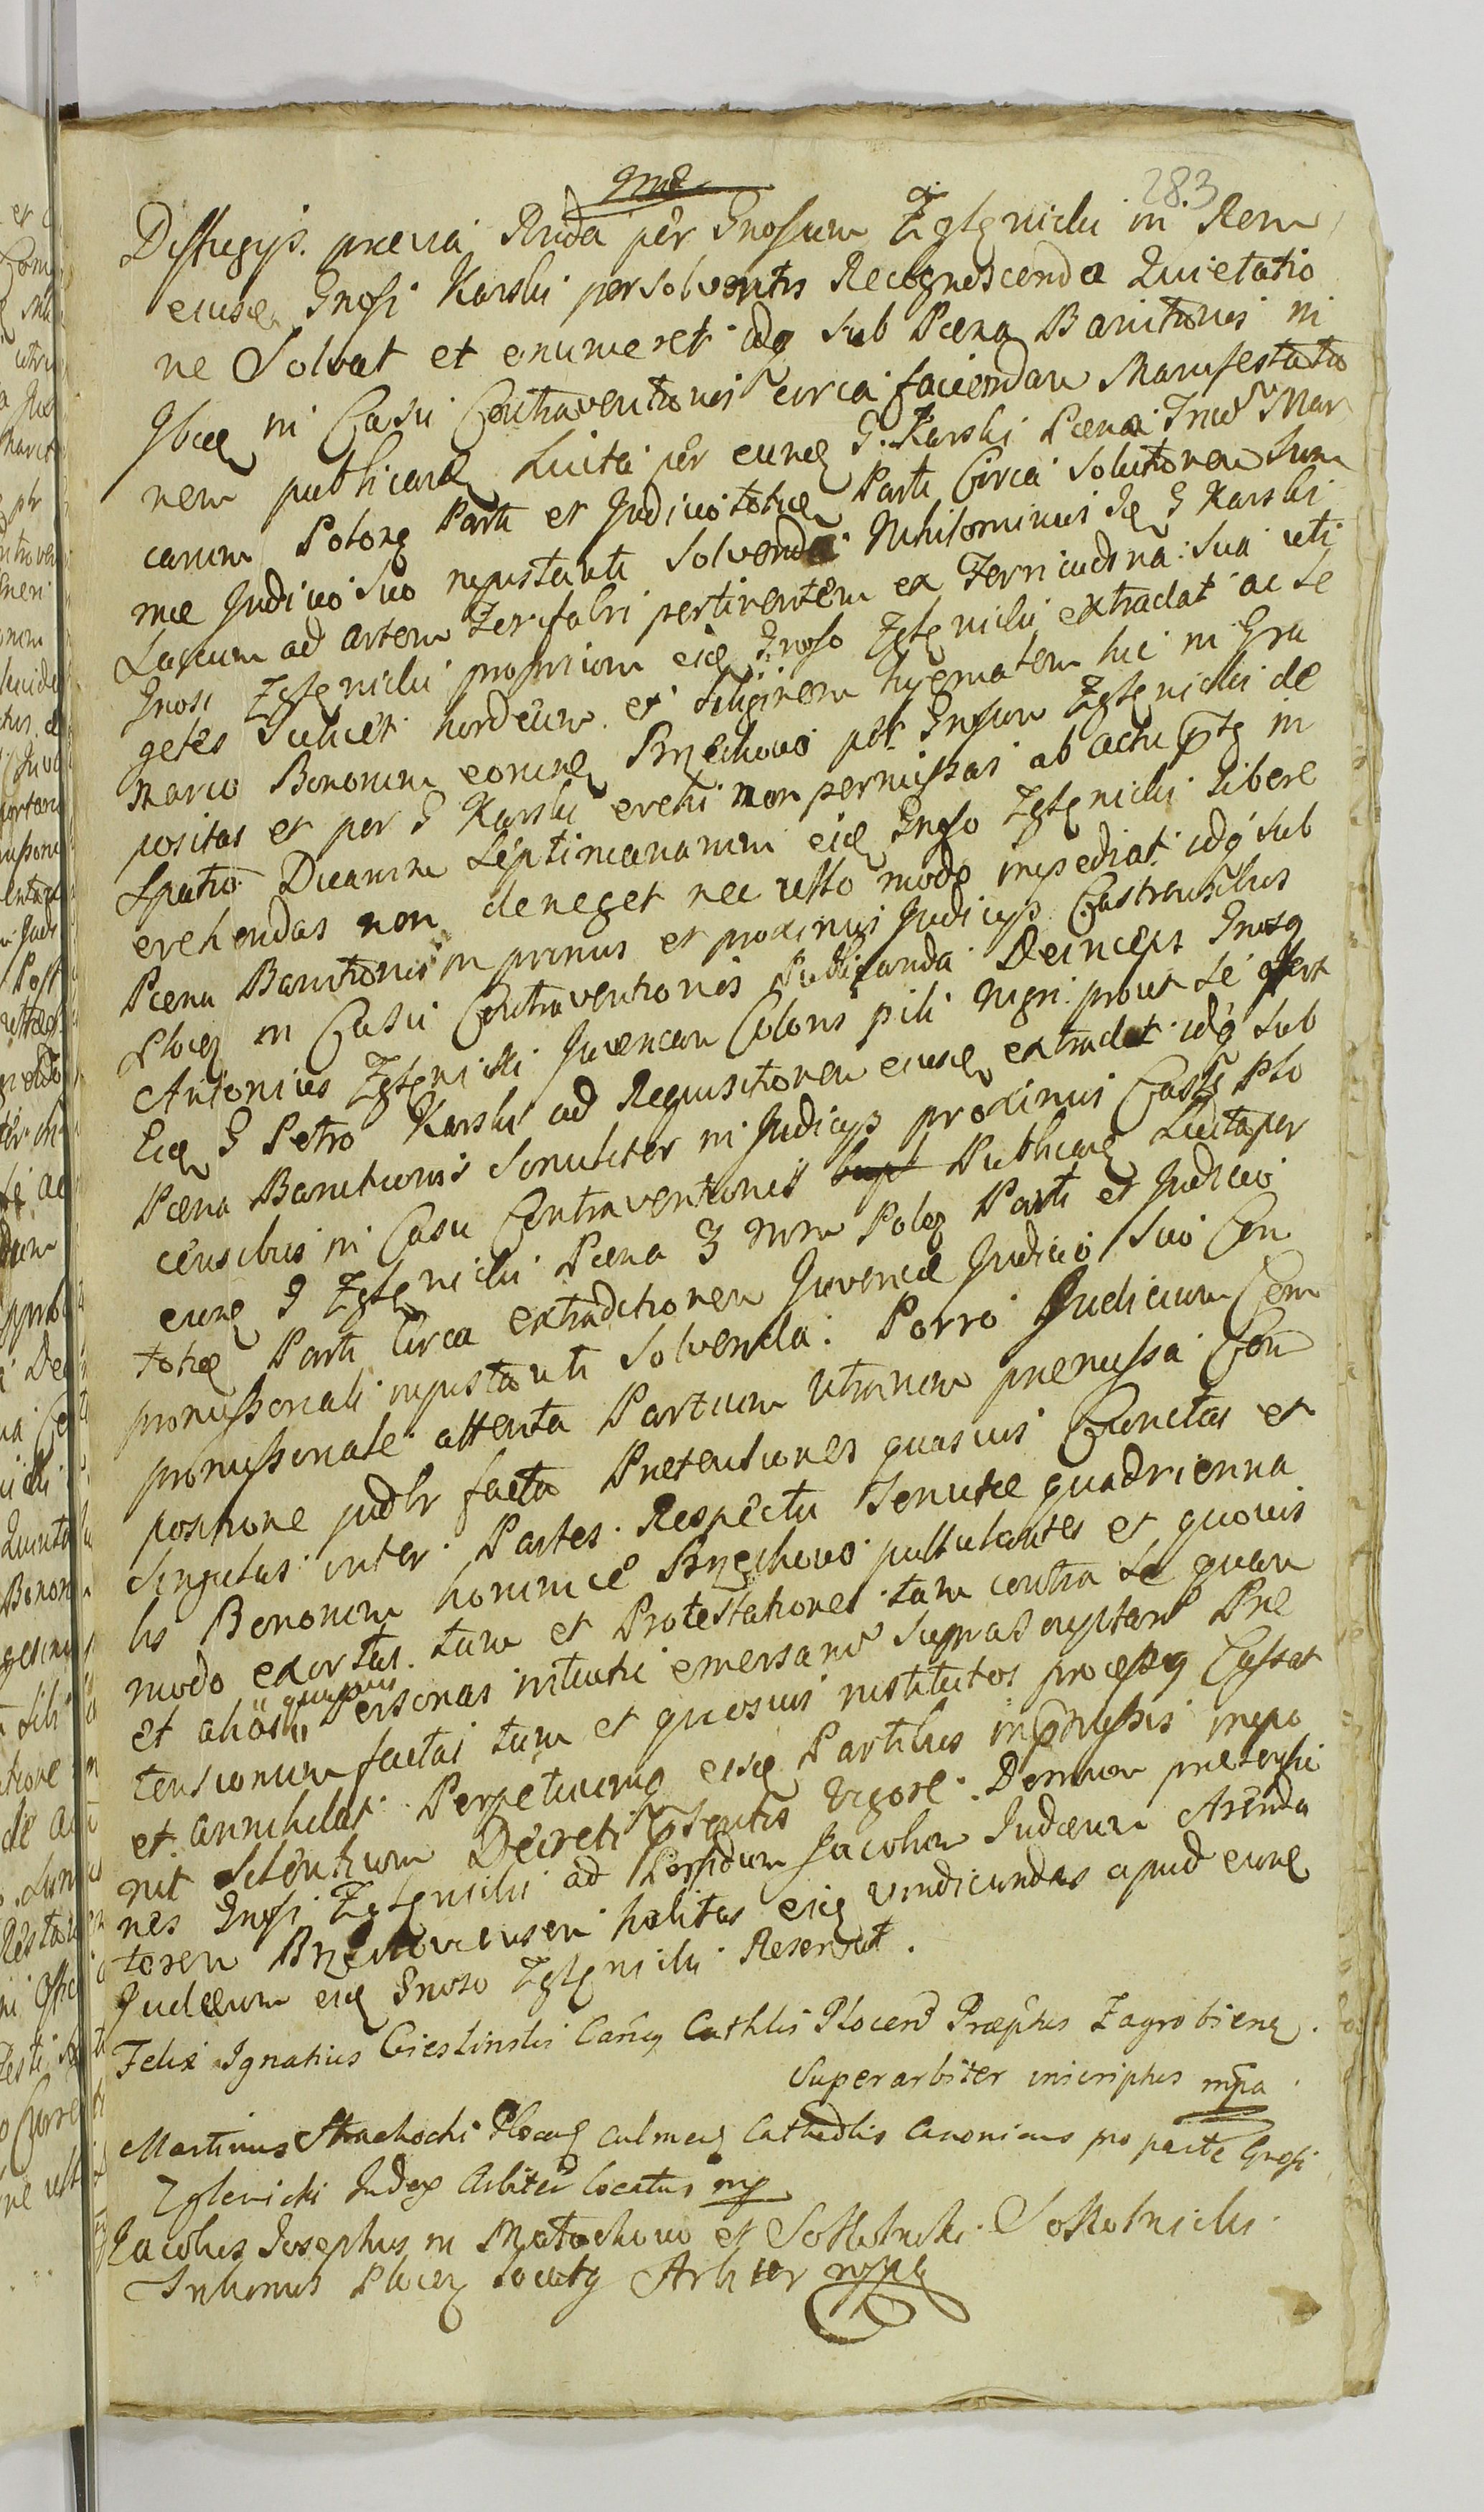 283
Diffugijs. praevia Ruda per Gnosum Zglenicki in Rem
eiusd Gnosi Karski persolventis Recognoscenda Quietatio
ne Solvat et enumeret idq sub Paena Banitionis in
in Casu Contraventionis circa faciendam Manifestatio
nem publicand Luita per eund G. Karski Paena Mar
carum Polon Parti et Judicio totid Parti Circa Solutionem Sum
mae Judicio suo injustanti Solvenda. Nihilominus Id G Karski
ad artem Ferrifabri pertinentem ex Ferricudina sua uti
Gnosi Zglenicki propriam eid Gnoso Zglenicki extradat ac Se
getes Scilicet hordeum et Siliginem hyematem hic in Gra
nario Bonorum eorund Brzechowo per Gnosum Zglenicki de
positas et per G Karski evehi non permissas ab actu pntg in
Spatio Duarum Septimanarum eid Gnoso Zglenicki libere
evehendas non deneget nec ullo modo impediat idq sub
Paena Banitionis in primis et proximis Judicijs Castrensibus
Plocen in Casu Contraventionis Publicanda Deinceps Gnosq
Antonius Zglenicki Juvencam Coloris pili nigri prout se offert
Eid G Petro Karski ad Requisitionem eiusd extradat idq sub
Paena Banitionis Similiter in Judicijs proximis Castr Plo
censibus in Casu Contraventionis Publicand Luita per
eund G Zglenicki Paena 3 mrm Polon Parti et Judicio
totid Parti Circa extraditionem Juvencae Judicio suo Com
promissoriali injustanti Solvenda. Porro Judicium Com
promissoriale attenta Partium utrarum praemissa Com
positione judlr facta Praetensiones quasvis Cunctas et
Singulas inter Partes Respectu Tenutae quadrienna
lis Bonorum Brzechowo pullulantes et quovis
modo exortas tum et Protestationes tam contra se quam
et alias quaspiam Personas intuitu emersarum suprascriptarum Prae
tensionum factas tum et quosvis institutos process Cassat
et annihilat Perpetuumq eisd Partibus in praemissis impo
nit Silentium Decreti praesentis vigore. Demum praetensio
nes Gnosi Zglenicki ad Perfidum Jacobum Judaeum Arenda
torem Brzechoviensem habitas eid vindicandas apud eund
Judaeum eid Gnoso Zglenicki Reservat.
Felix Ignatius Cieslinski Canq Cathlis Plocen Praeptus Zagrobienq.
Superarbiter inscriptus mpa
Martinus Strachocki Plocen Culmen Cathedlis Canonicus pro parte Gnosi
Zglenicki Judex Arbiter locatus mp
Jacobus Josephus in Matachowo et Sokolniki Sokolnicki
Plocen locatg Arbiter mppa